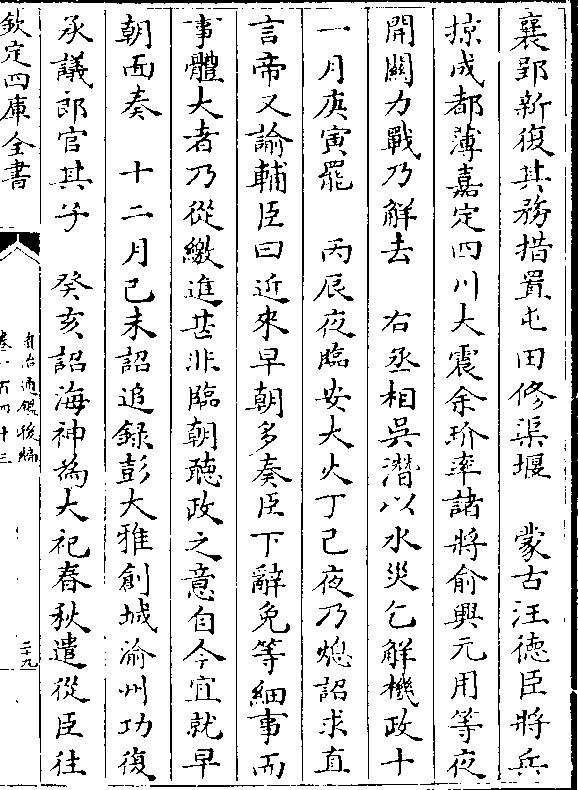 襄郢新復其務措置屯田修渠堰　蒙古汪德臣將兵
掠成都薄嘉定四川大震余玠率諸將俞興元用等夜
開關力戰乃解去　右丞相吳潛以水災乞解機政十
一月庚寅罷　丙辰夜臨安大火丁巳夜乃熄詔求直
言帝又諭輔臣曰近來早朝多奏臣下辭免等細事而
事體大者乃從繳進甚非臨朝聽政之意自今宜就早
朝面奏　十二月己未詔追錄彭大雅創城渝州功復
承議郎官其子　癸亥詔海神為大祀春秋遣從臣往
欽定四庫全書
資治通鑑後編
卷一百四十三
二十九